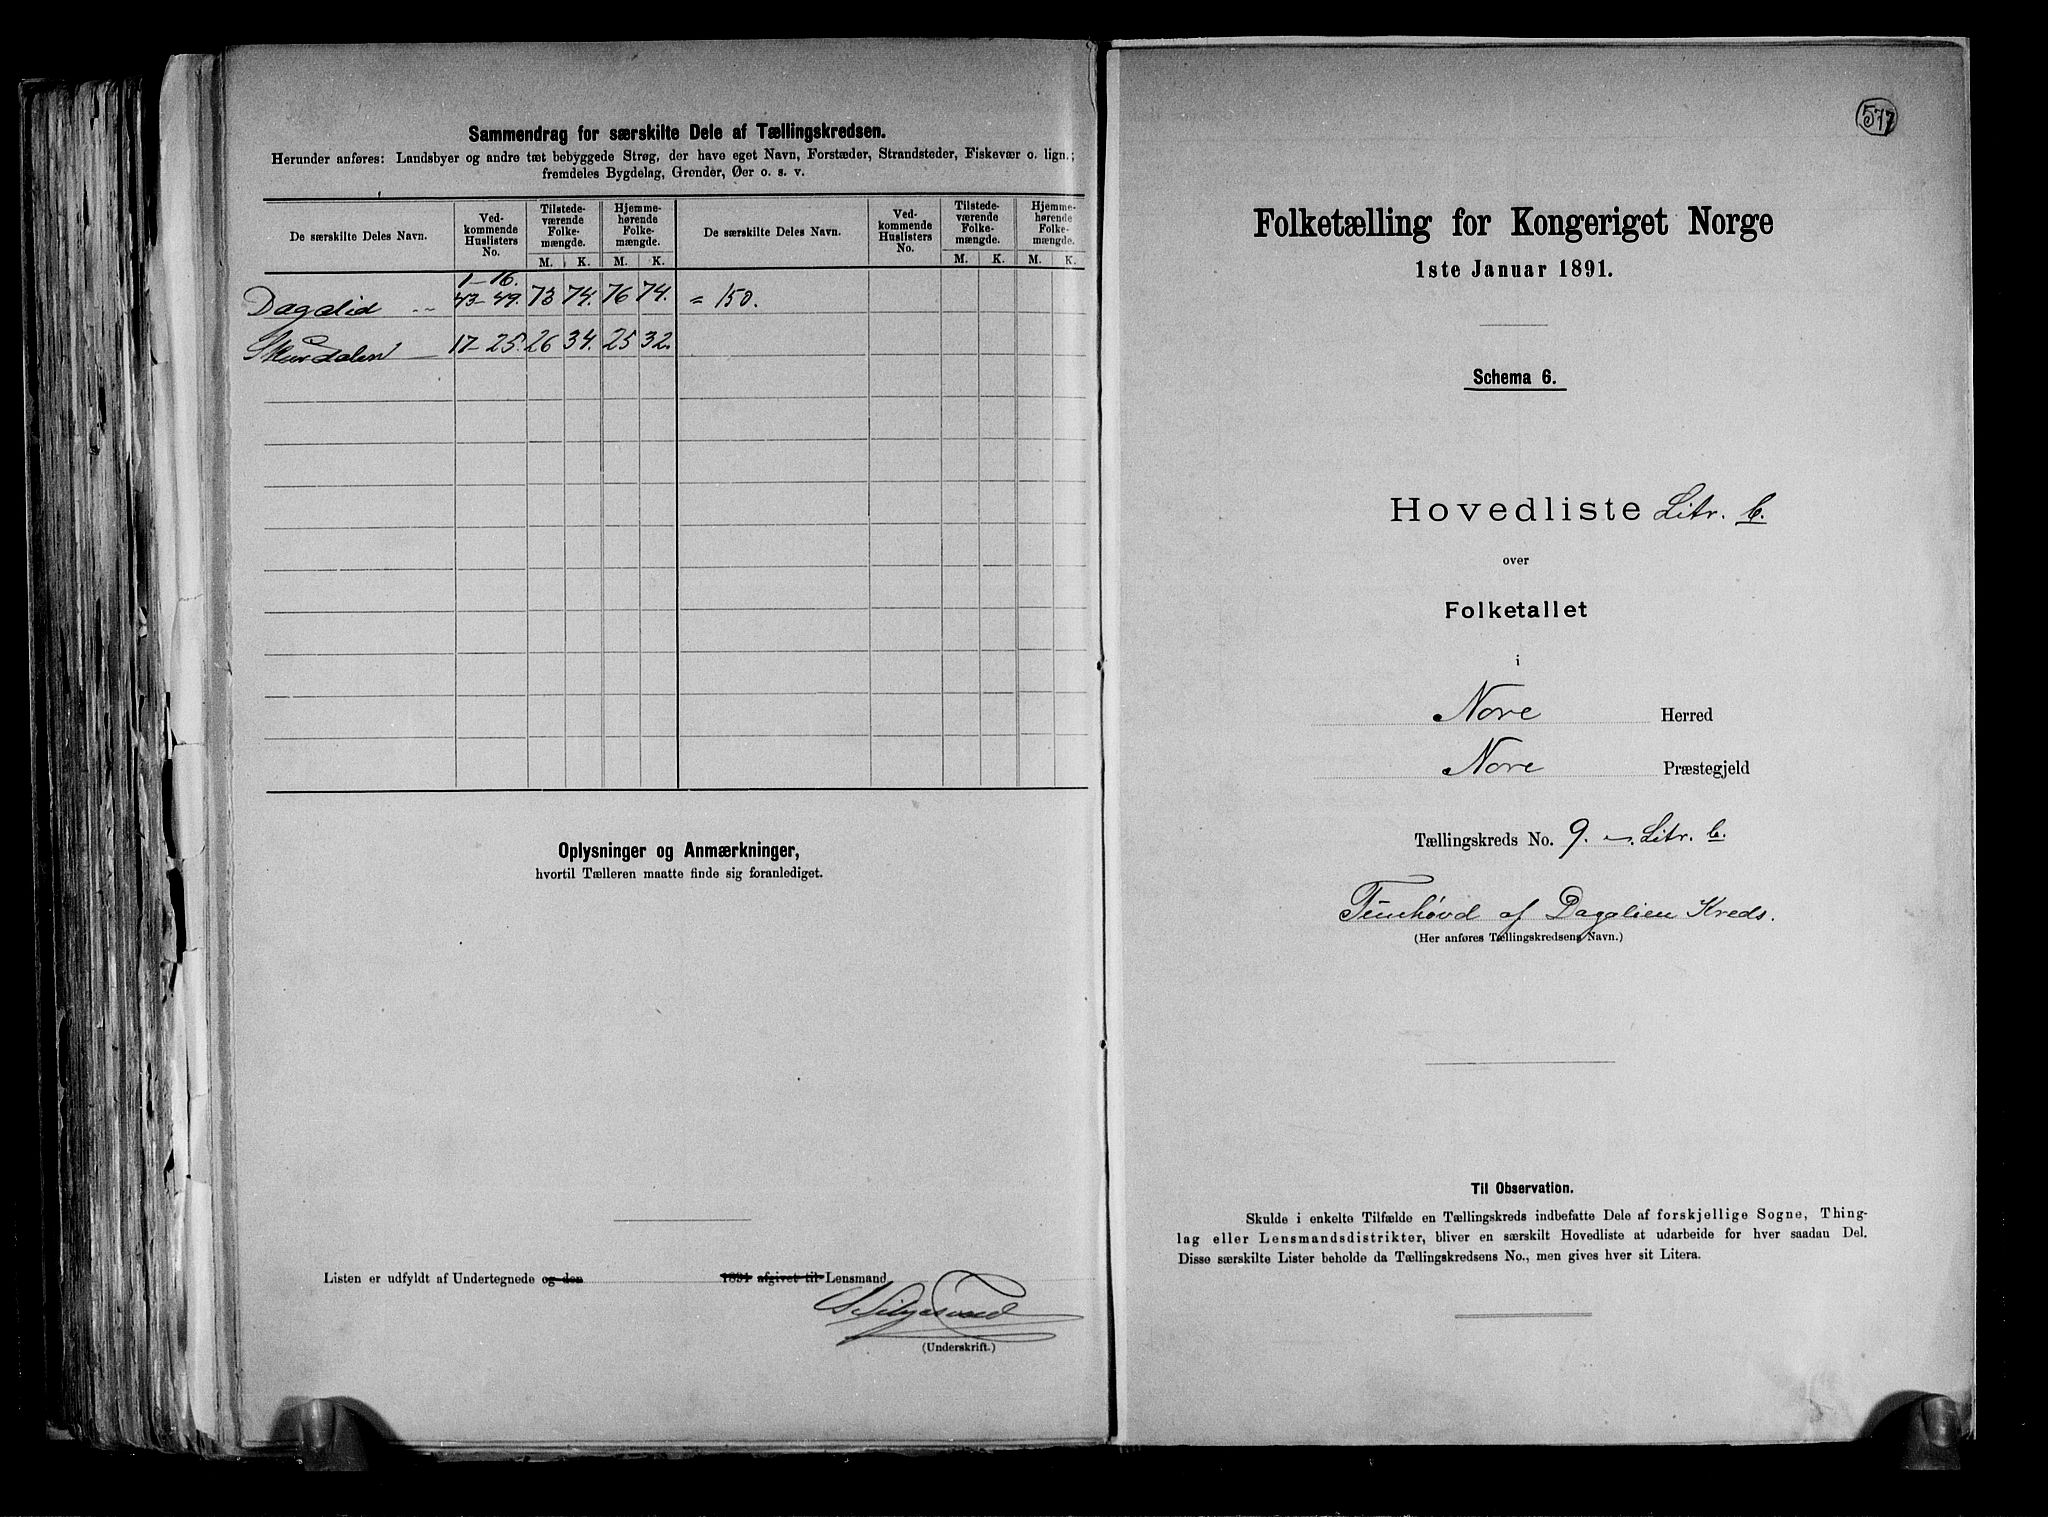 Sammendrag for særskilte Dele af Tællingskredsen.
Herunder anføres: Landsbyer og andre tæt bebyggede Strøg, der have eget Navn, Forstæder, Strandsteder, Fiskevær o. lign.;
fremdeles Bygdelag, Grender, Øer o. s. v.
De særskilte Deles Navn. Ved-kommende Huslisters No. Tilstede-værende Folke-mængde. Hjemme-hørende Folke-mængde. De særskilte Deles Navn. Ved-kommende Huslisters No. Tilstede-værende Folke-mængde. Hjemme-hørende Folke-mængde.
M. K. M. K. M. K. M. K.
1-16.
Dagalid 43-49. 73 74. 76 74. = 150.
Skurdalen 17-25. 26 34. 25 32.
Oplysninger og Anmærkninger,
hvortil Tælleren maatte finde sig foranlediget.
Listen er udfyldt af Undertegnede og den 1891 afgivet til Lensmand
(Underskrift.)
577
Folketælling for Kongeriget Norge
1ste Januar 1891.
Schema 6.
Hovedliste Litr. b.
over
Folketallet
i
Nore Herred
Nore Præstegjeld
Tællingskreds No. 9. Litr. b.
Tunhøvd af Dagalien Kreds.
(Her anføres Tællingskredsens Navn.)
Til Observation.
Skulde i enkelte Tilfælde en Tællingskreds indbefatte Dele af forskjellige Sogne, Thing-
lag eller Lensmandsdistrikter, bliver en særskilt Hovedliste at udarbeide for hver saadan Del.
Disse særskilte Lister beholde da Tællingskredsens No., men gives hver sit Litera.